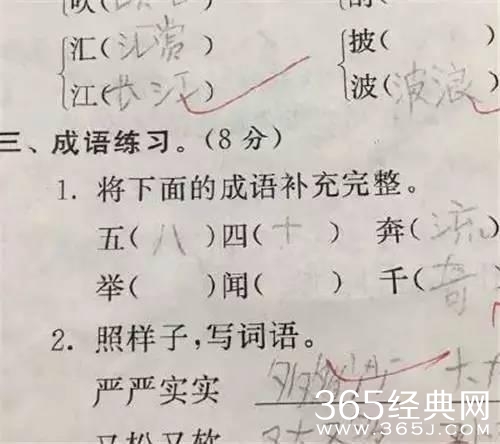 吹( 的(
汇(汇赏) 披( )
江(长江) 波(波浪
三、成语练习。(8分)
1. 将下面的成语补充完整。
五(八)四(十) 奔(流
举( )闻( ) 千(奇
2. 照样子,写词语。
严严实实
又松又软
365经典网
www.365J.com